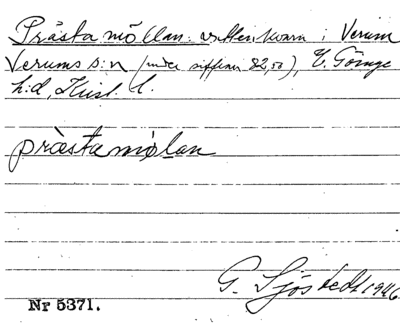 Prästamöllan: vattenkvarn i Verum
Verums s:n (under siffran 82,50), V. Göinge
h:d, Krist. l.
præstamølan
G. Sjöstedt 1946.
Nr 5371.